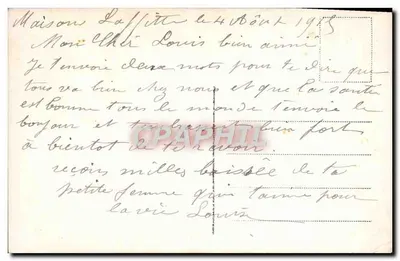 Maisons Laffitte le 4 Août 1915
Mon Cher Louis bien aimé
Je t'envoie deux mots pour te dire que
tous va bien chez nous et que la santé
est bonne tous le monde t'envoie le
bonjour et te bien fort
à bientôt de te avoir
reçois milles baisées de ta
petite femme qui t'aime pour
la vie Louise
CPRBOOK